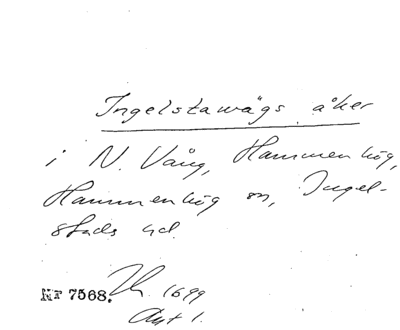 Ingelstawägs åker
i N. Vång, Hammenhög,
Hammenhög sn, Ingel-
stads hd.
Nr 7568. 1699
Akt 1.